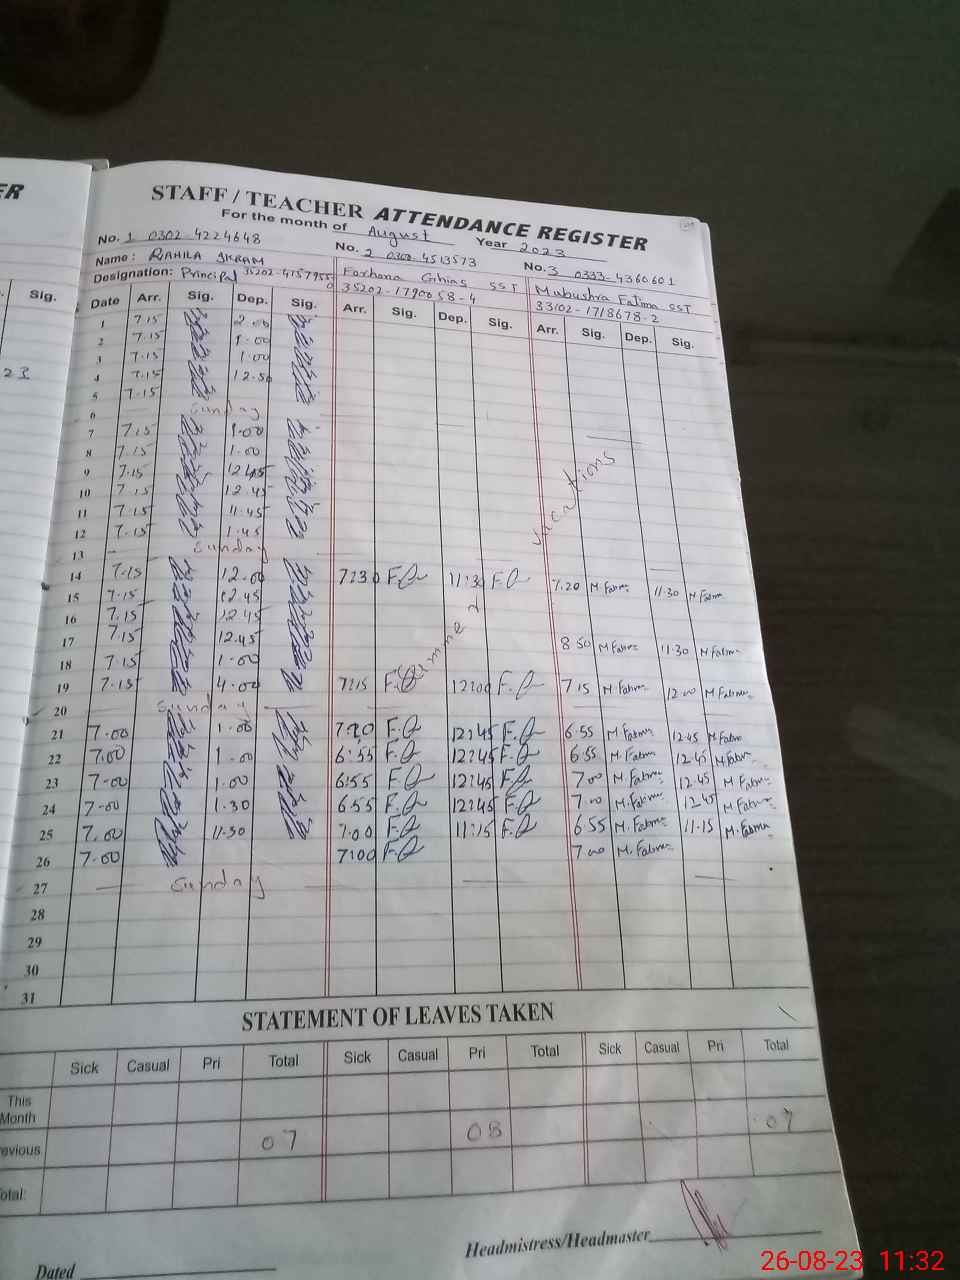 ER
STAFF / TEACHER ATTENDANCE REGISTER
For the month of August Year 2023
No. 1 0302-4224648 No. 2 0300-4513573 No. 3 0333-4360601
Name : RAHILA IKRAM
Designation: Principal Farhana SST Mubushra Fatima SST
35202-1790058-4 33102-1718678-2
Sig. Date Arr. Sig. Dep. Sig. Arr. Sig. Dep. Sig. Arr. Sig. Dep. Sig.
1 7.15 2.00
2 7.15 1.00
3 7.15 1.00
23 4 7.15 12.50
5 7.15
6 Sunday
7 7.15 1.00
8 7.15 1.00
9 7.15 12.45
10 7.15 12.45
11 7.15 11.45
12 7.15 1.45
vacations
13 Sunday
14 7.15 12.00 7:30 11:30 7.20 M.Fatima 11.30 M.Fatima
15 7.15 12.45
16 7.15 12.45
17 7.15 12.45 8.50 M.Fatima 11.30 M.Fatima
18 7.15 1.00
19 7.15 4.00 7:15 12:00 7.15 M.Fatima 12.00 M.Fatima
20 Sunday
21 7.00 1.00 12:45 6.55 M.Fatima 12.45 M.Fatima
22 7.00 1.00 6:55 12:45 6.55 M.Fatima 12.45 M.Fatima
23 7.00 1.00 6:55 12:45 7.00 M.Fatima 12.45 M.Fatima
24 7.00 1.30 6:55 12:45 7.00 M.Fatima 12.45 M.Fatima
25 7.00 11.30 7:00 11:15 6.55 M.Fatima 11.15 M.Fatima
26 7.00 7:00 7.00 M.Fatima
27 Sunday
28
29
30
31
STATEMENT OF LEAVES TAKEN
Sick Casual Pri Total Sick Casual Pri Total Sick Casual Pri Total
This
Month
evious 07 08 07
otal:
Headmistress/Headmaster
Dated
26-08-23 11:32